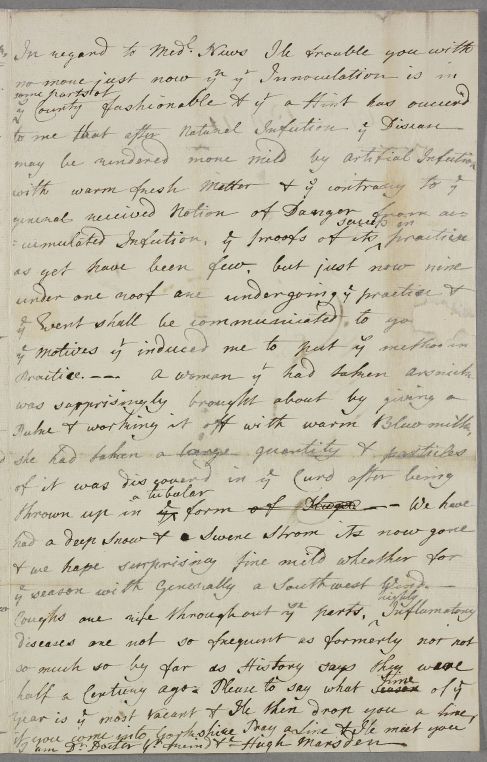 In regard to Medl. News Ile trouble you with
no more just now yn yt Innoculation is in
some parts of
ys County fashionable & yt a Hint has occurd
to me that after Natural Infection ye Disease
may be rendered more mild by artifial Infection
with warm fresh Matter & yt contrary to ye
general received Notion of Danger from ac=
=cumulated Infection, ye proofs of its success in practice
as yet have been few, but just now nine
under one roof are undergoing ye practise &
ye Event shall be communicated to yo
ye Motives yt induced me to put ys method in
Practice. —— A woman yt had taken arsnick
was surprisingly brought about by giving a
Puke & working it off with warm Blue milk,
she had taken a large quantity & particles
of it was discoverd in ye Curd after being
thrown up in a tubular form —— We have
had a deep Snow & Severe Strom its now gone
& we have surprising fine mild wheather for
ye season with Generally a Southwest Wind
Coughs are rife throughout yse parts, highly Inflamatory
diseases are not so frequent as formerly nor not
so much so by far as History says they were
half a Century ago Please to say what time of ye
Year is ye most vacant & Ile then drop you a line,
if you come into Yorkshire Pray a Line & Ile meet you
I am Dr. Docter Yr. friend &c Hugh Marsden